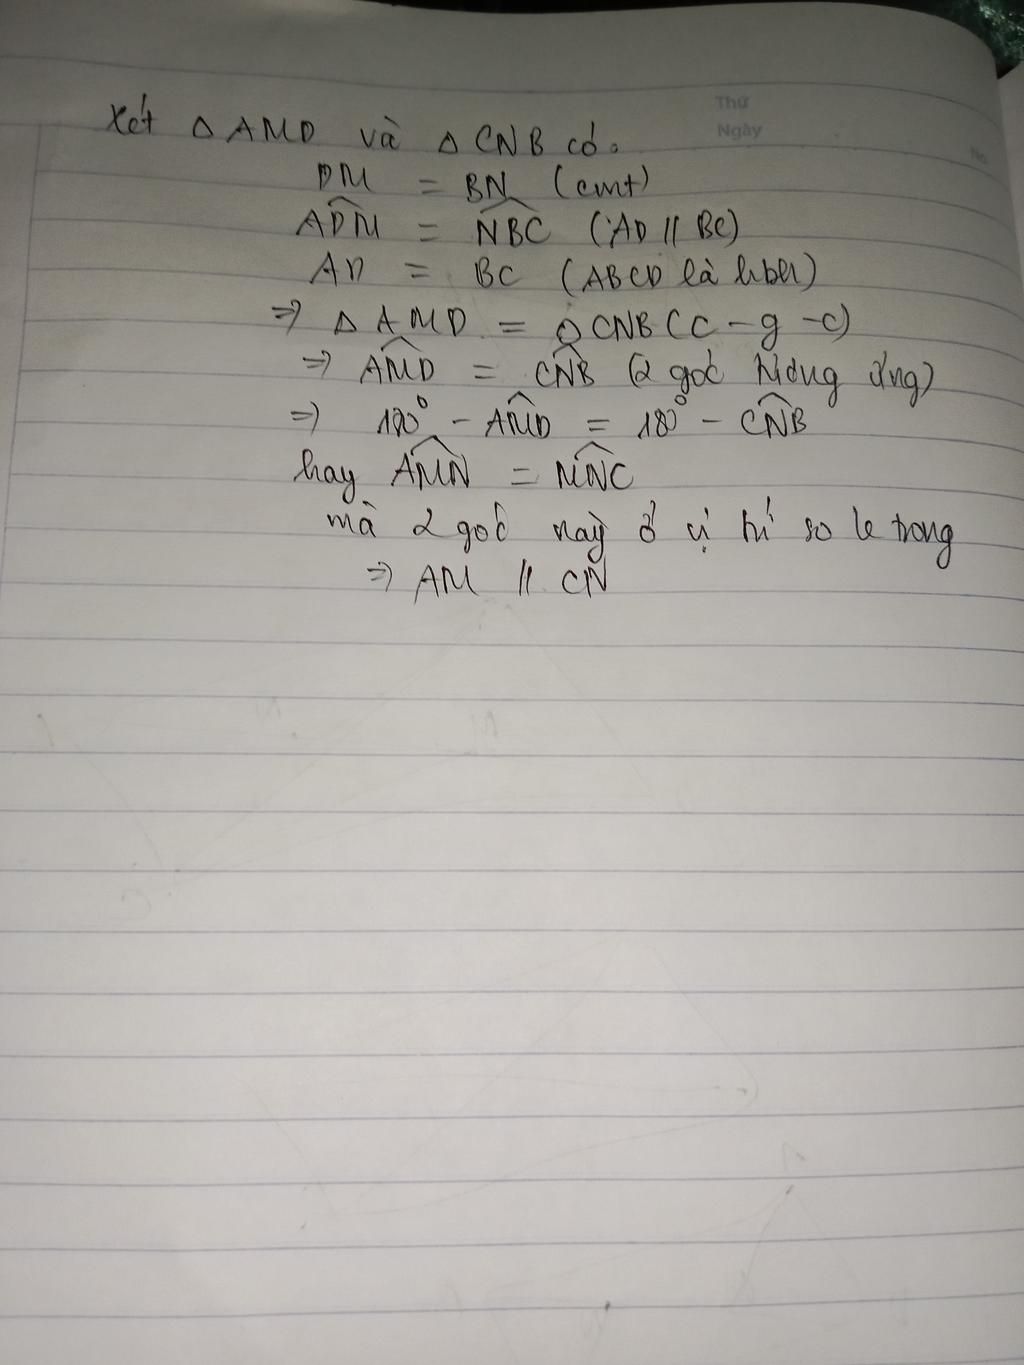 Thứ
Ngày
No
Xét △ AMD và △ CNB có:
DM = BN (cmt)
ADM = NBC (AD // BC)
AD = BC (ABCD là hbh)
=> △ AMD = △ CNB (c - g - c)
=> AMD = CNB (2 góc tương ứng)
=> 180° - AMD = 180° - CNB
hay AMN = MNC
mà 2 góc này ở vị trí so le trong
=> AM // CN